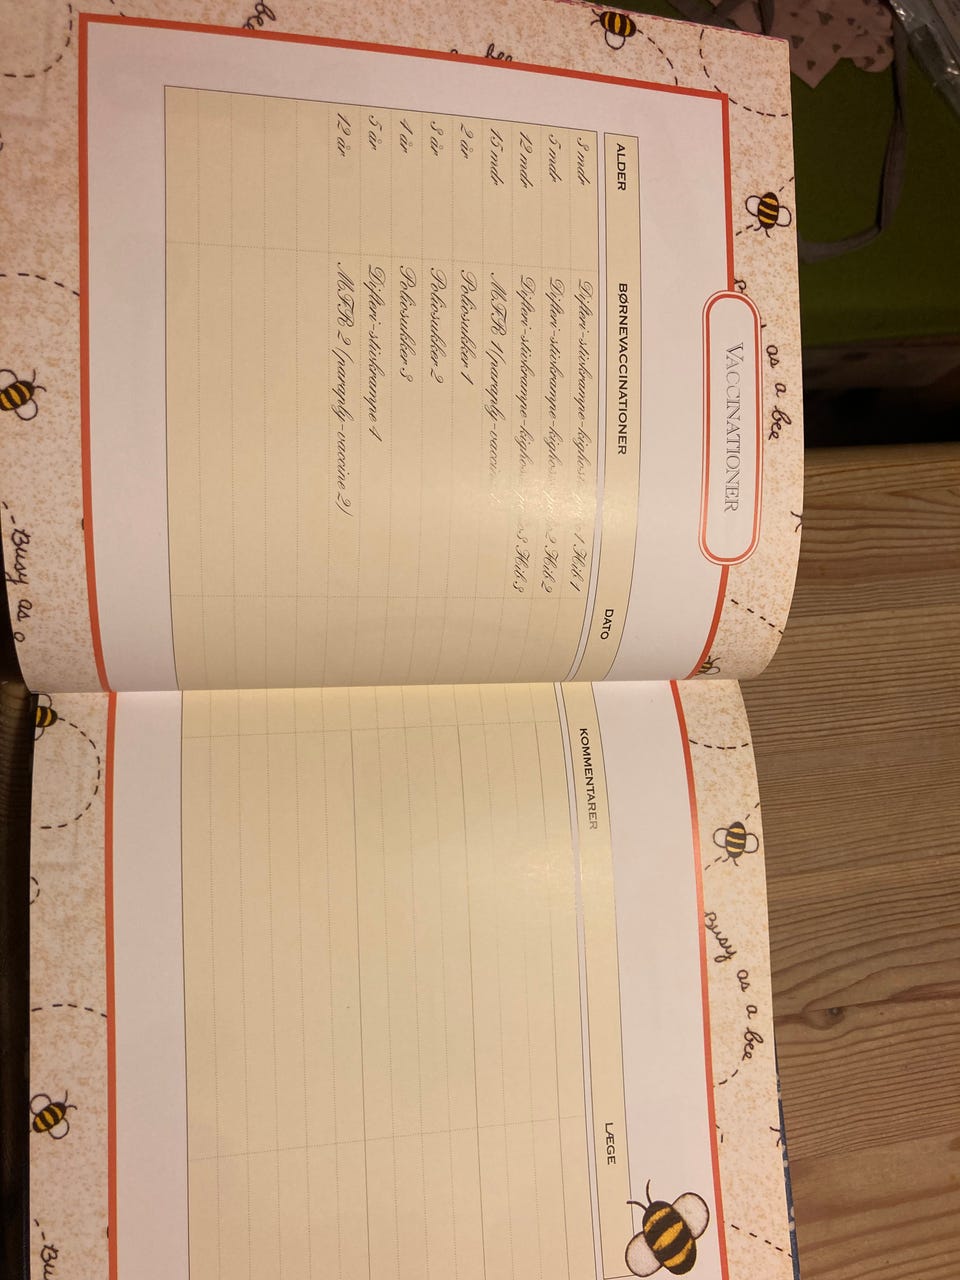 VACCINATIONER
ALDER BØRNEVACCINATIONER DATO KOMMENTARER LÆGE
3 mdr Difteri-stivkrampe-kighoste- 1 Hib 1
5 mdr Difteri-stivkrampe-kighoste- 2 Hib 2
12 mdr Difteri-stivkrampe-kighoste- 3 Hib 3
15 mdr M.F.R 1 (paraply-vaccine
2 år Poliosukker 1
3 år Poliosukker 2
4 år Poliosukker 3
5 år Difteri-stivkrampe 4
12 år M.F.R 2 (paraply-vaccine 2)
be
bee
as a bee
Busy as a
Busy as a bee
Bu